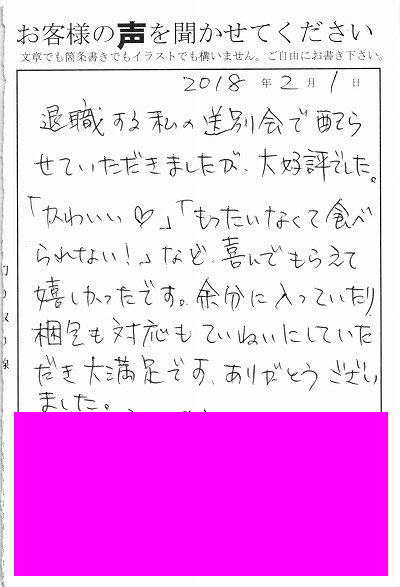 お客様の声を聞かせてください
文章でも箇条書きでもイラストでも構いません。ご自由にお書き下さい。
2018年2月1日
退職する私の送別会で配らせ
せていただきましたが、大好評でした。
「かわいい♡」「もったいなくて食べ
られない!」など、喜んでもらえて
嬉しかったです。余分に入っていたり
梱包も対応もていねいにしていた
だき大満足です、ありがとうござい
ました。
切り取り線